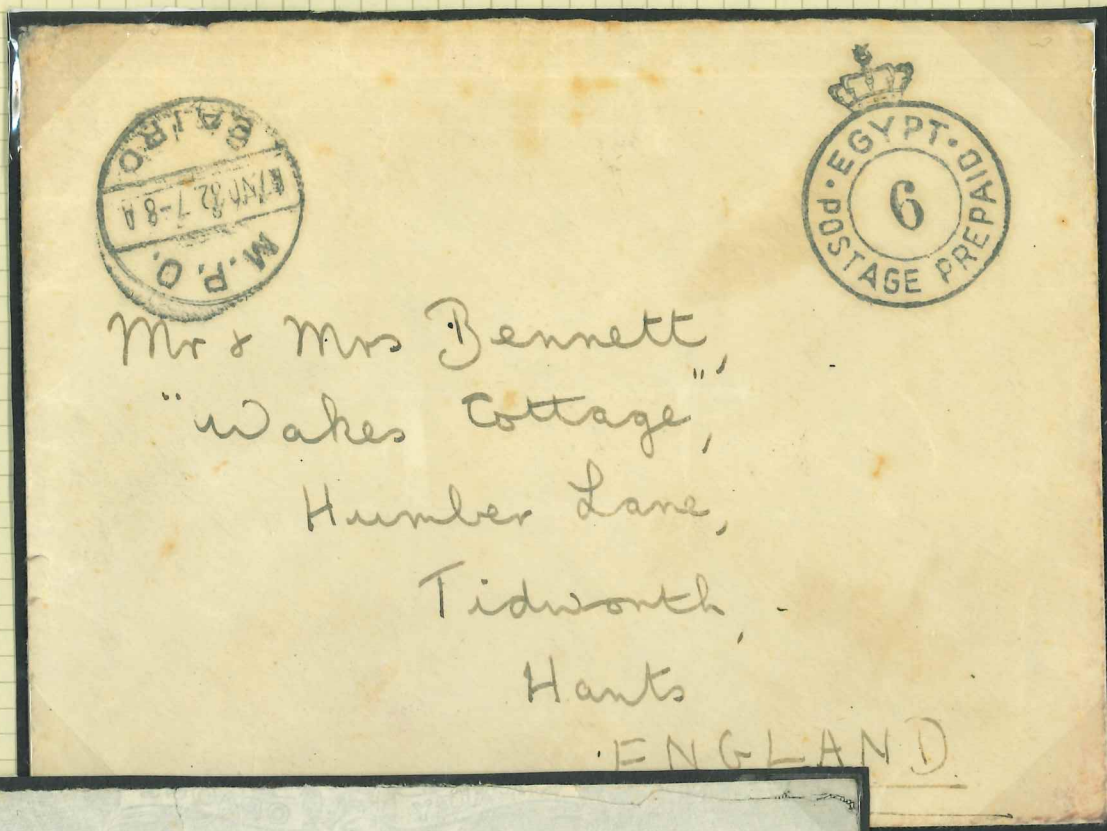 M.P.O. CAIRO
32 7-8 A
EGYPT
6
POSTAGE PREPAID
Mr & Mrs Bennett,
"Wakes Cottage",
Humber Lane,
Tidworth,
Hants
ENGLAND.